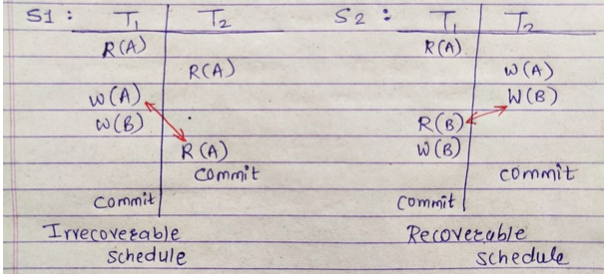 S1 : T1 T2
R(A)
R(A)
W(A)
W(B)
R(A)
commit
commit
Irrecoverable
schedule
S2 : T1 T2
R(A)
W(A)
W(B)
R(B)
W(B)
commit
commit
Recoverable
schedule